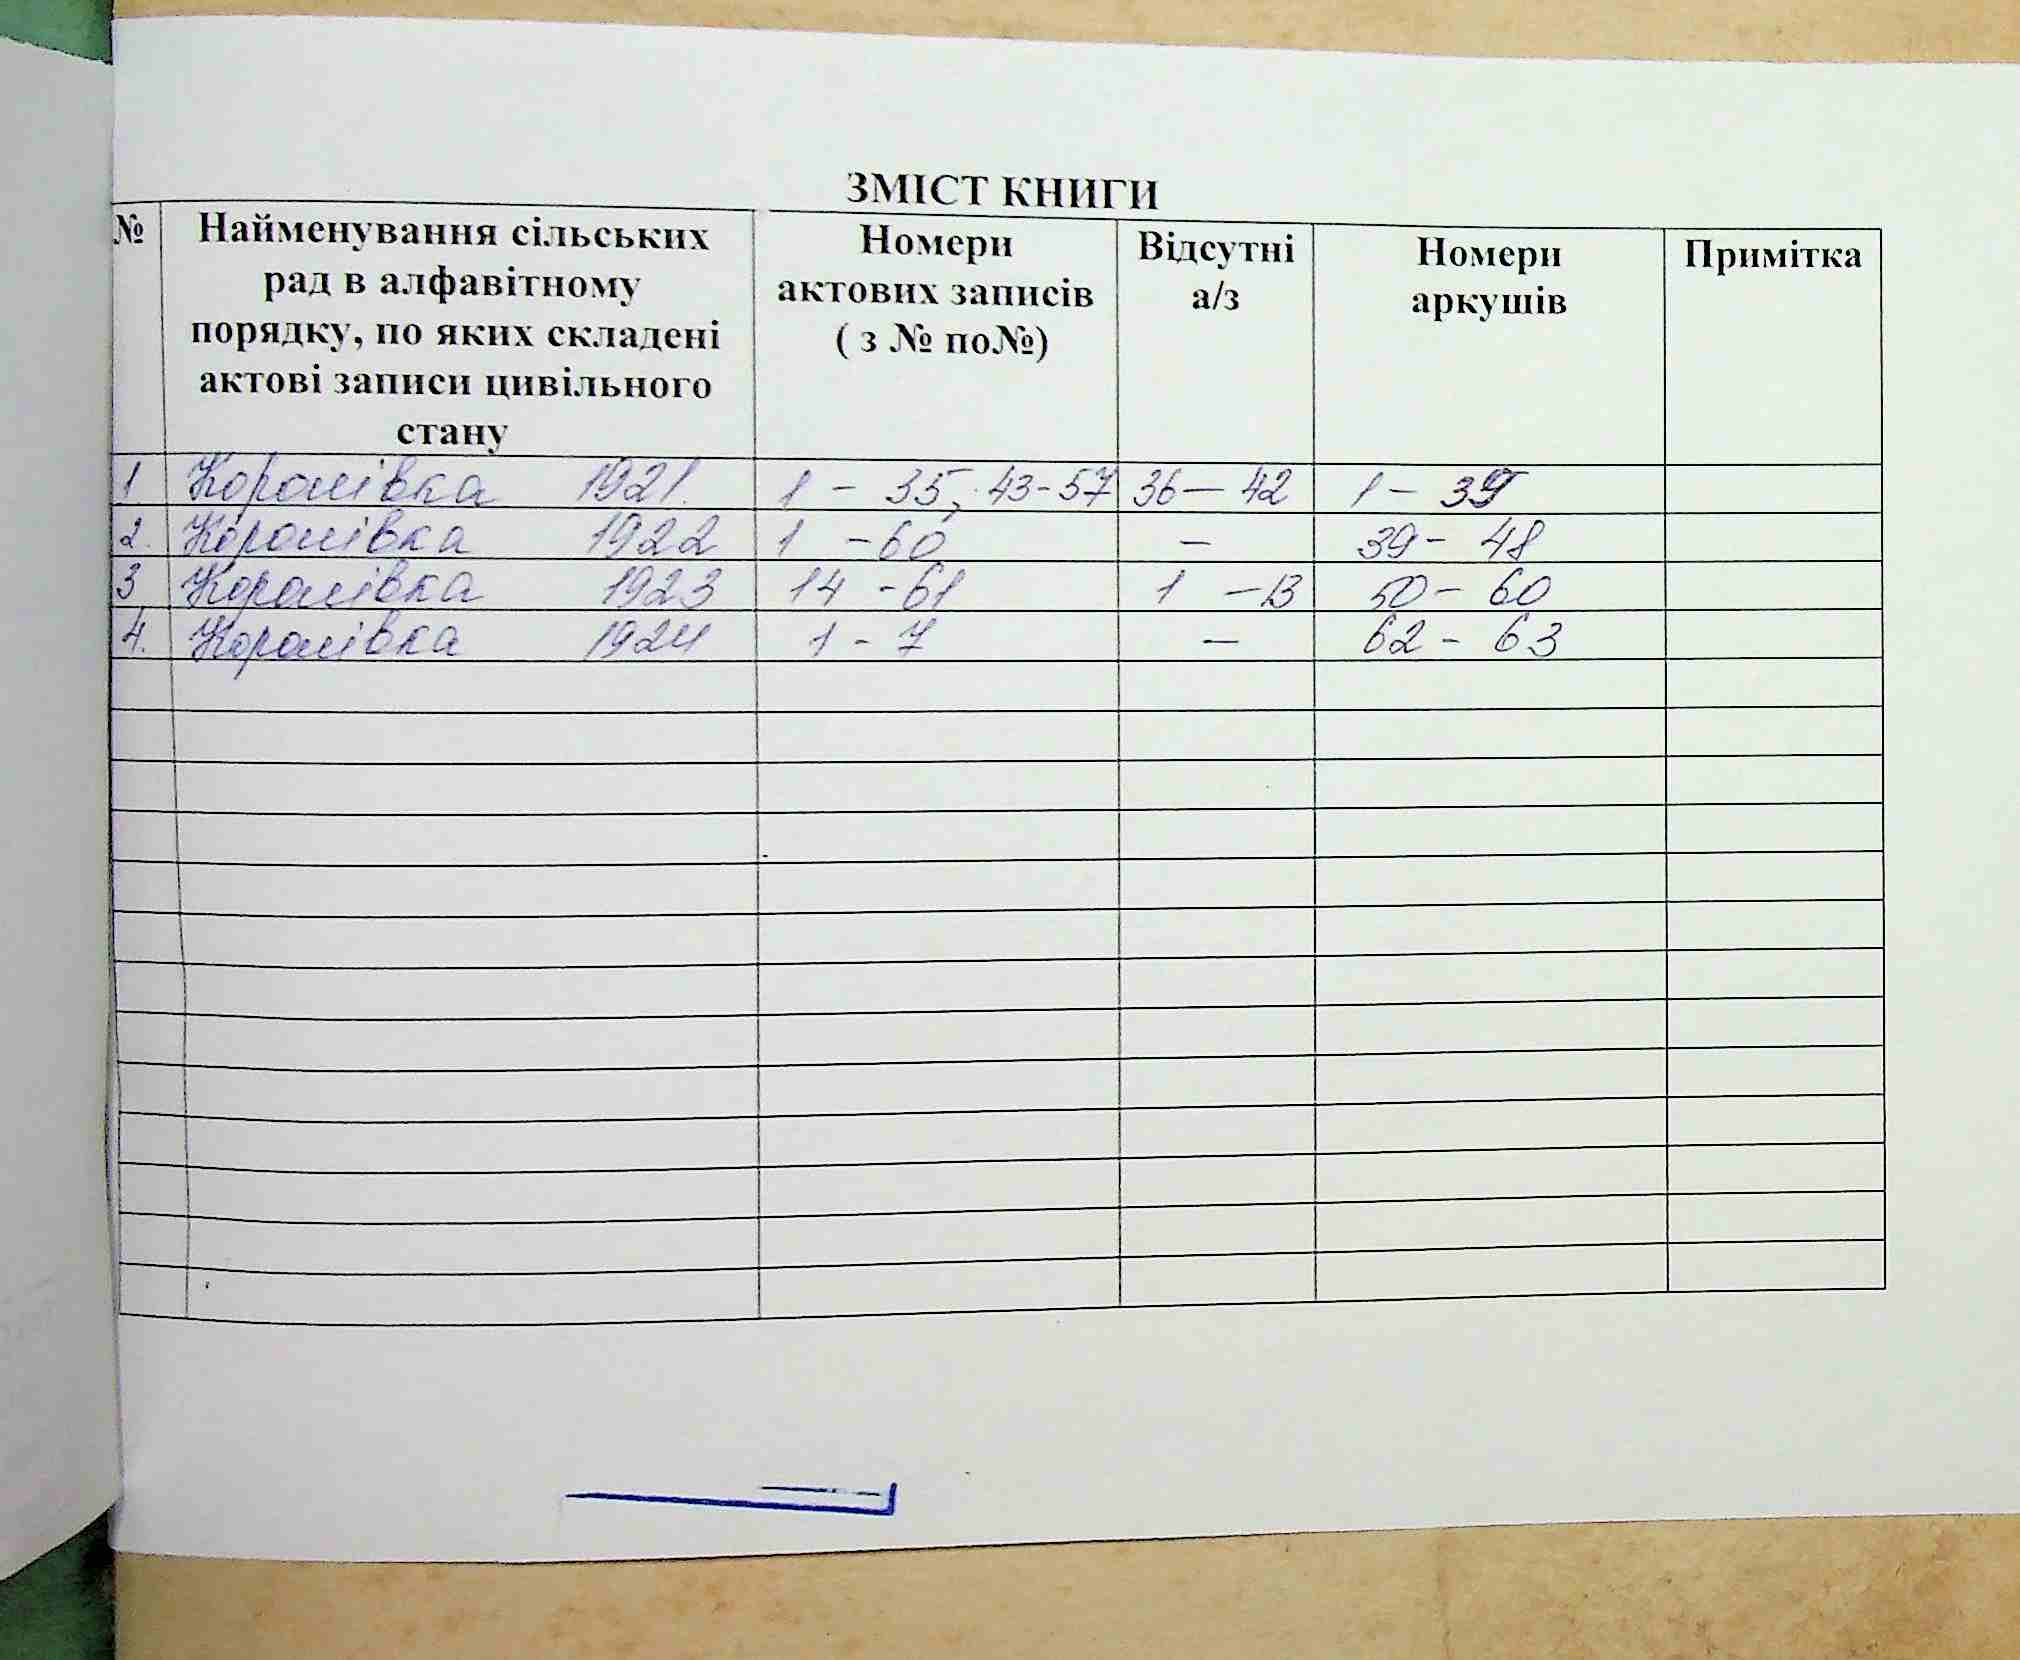 ЗМІСТ КНИГИ
№ Найменування сільських рад в алфавітному порядку, по яких складені актові записи цивільного стану Номери актових записів ( з № по№) Відсутні а/з Номери аркушів Примітка
1 Королівка 1921. 1 - 35, 43-57 36 - 42 1 - 39
2. Королівка 1922 1 - 60 - 39 - 48
3 Королівка 1923 14 - 61 1 - 13 50 - 60
4. Королівка 1924 1 - 7 - 62 - 63